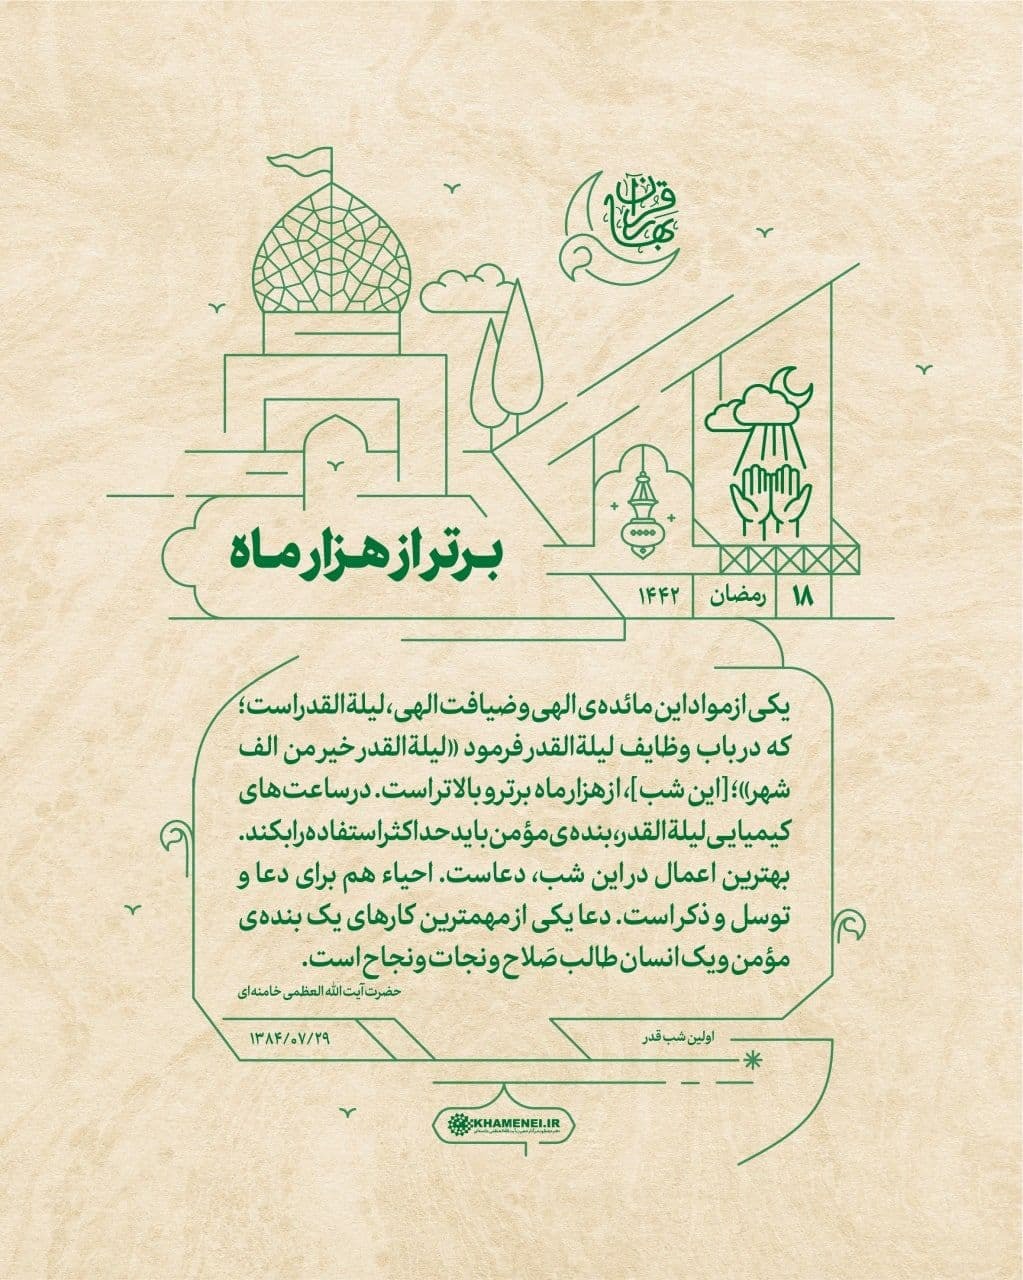 بهار قرآن
برتر از هزار ماه
۱۸ رمضان ۱۴۴۲
یکی از مواد این مائده‌ی الهی و ضیافت الهی، لیلة‌القدر است؛
که در باب وظایف لیلة‌القدر فرمود «لیلة القدر خیر من الف
شهر»؛ [این شب]، از هزار ماه برتر و بالاتر است. در ساعت‌های
کیمیایی لیلة‌القدر، بنده‌ی مؤمن باید حداکثر استفاده را بکند.
بهترین اعمال در این شب، دعاست. احیاء هم برای دعا و
توسل و ذکر است. دعا یکی از مهمترین کارهای یک بنده‌ی
مؤمن و یک انسان طالب صَلاح و نجات و نجاح است.
حضرت آیت الله العظمی خامنه‌ای
اولین شب قدر
۱۳۸۴/۰۷/۲۹
KHAMENEI.IR